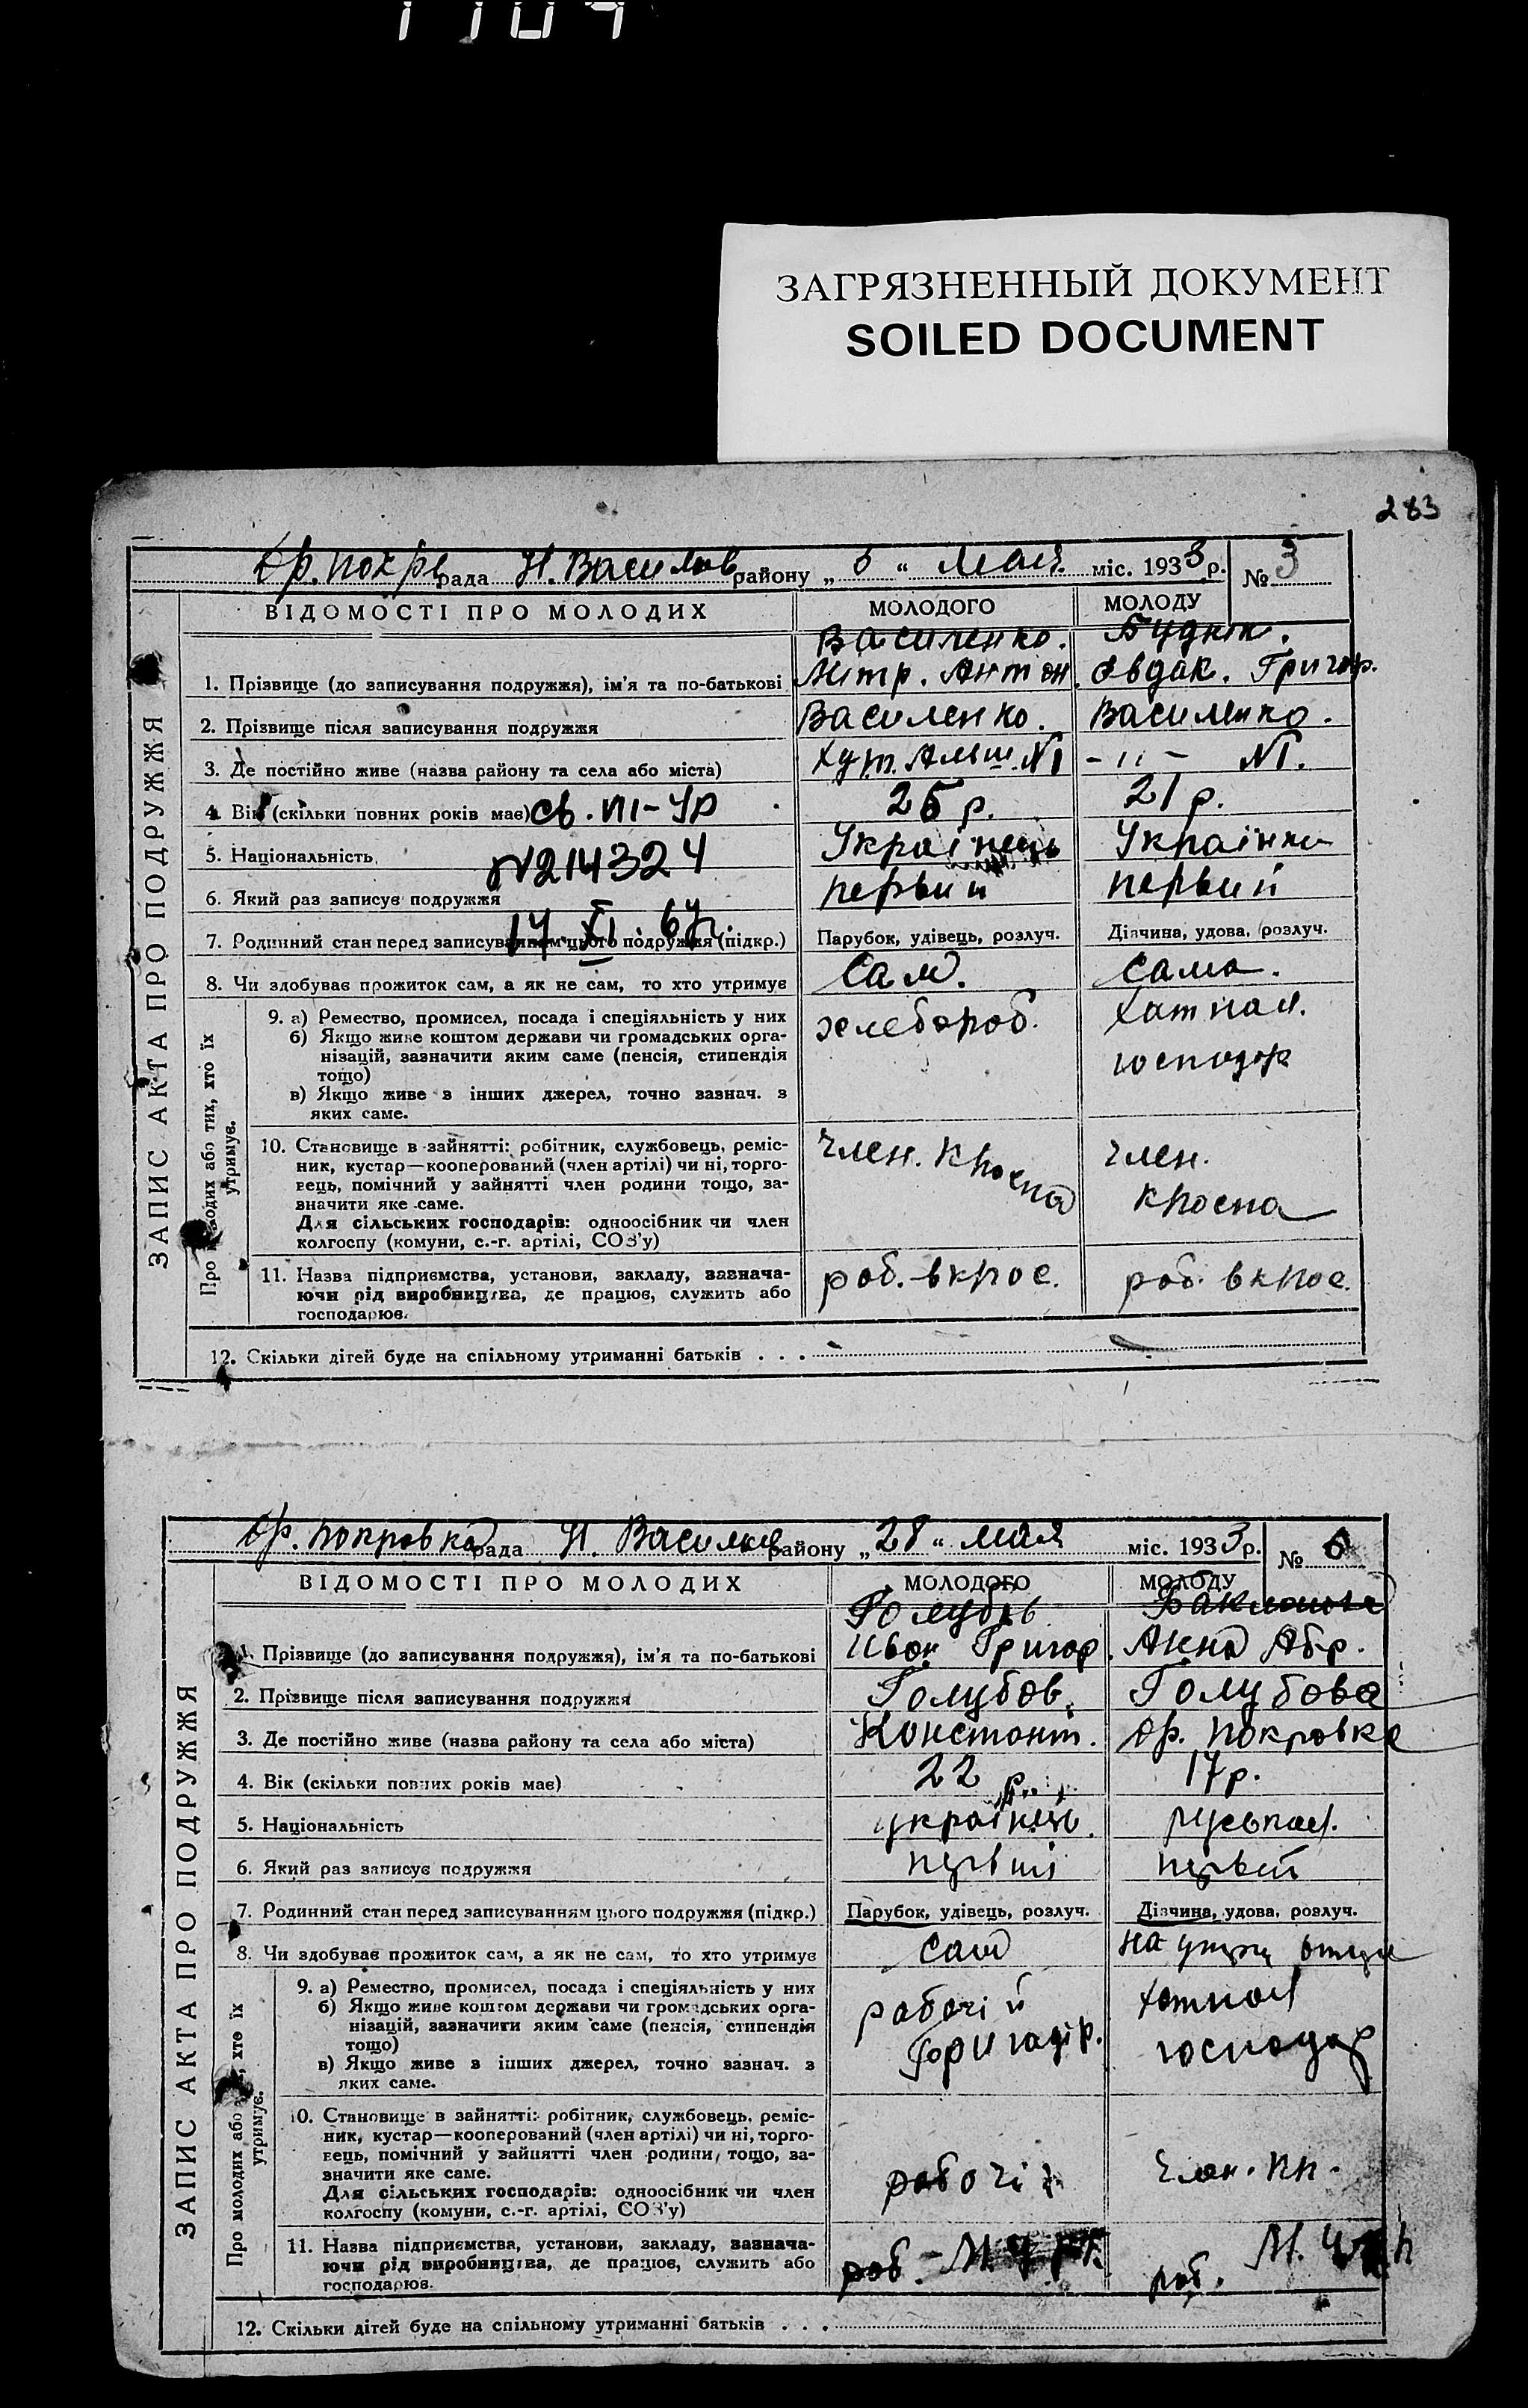 ЗАГРЯЗНЕННЫЙ ДОКУМЕНТ
SOILED DOCUMENT
283
рада Н. Василів району „ " мая міс. 1933 р. № 3
ВІДОМОСТІ ПРО МОЛОДИХ МОЛОДОГО МОЛОДУ
Василенко.
1. Прізвище (до записування подружжя), ім'я та по-батькові Мітр. Антон. Явдок. Григор.
2. Прізвище після записування подружжя Василенко. Василенко.
3. Де постійно живе (назва району та села або міста) Хут. №1 -"- №1.
4. Вік (скільки повних років має) 25 р. 21 р.
5. Національність Українець Українка
№214324
6. Який раз записує подружжя первий первий
7. Родинний стан перед записуванням цього подружжя (підкр.) Парубок, удівець, розлуч. Дівчина, удова, розлуч.
8. Чи здобуває прожиток сам, а як не сам, то хто утримує Сам. Сама.
ЗАПИС АКТА ПРО ПОДРУЖЖЯ
утримує.
9. а) Ремество, промисел, посада і спеціяльність у них хлебороб. хатная
б) Якщо живе коштом держави чи громадських орга-
нізацій, зазначити яким саме (пенсія, стипендія господар
тощо)
в) Якщо живе з інших джерел, точно зазнач. з
яких саме.
10. Становище в зайнятті: робітник, службовець, реміс- член. член.
ник, кустар—кооперований (член артілі) чи ні, торго-
вець, помічний у зайнятті член родини тощо, за-
значити яке саме.
Для сільських господарів: одноосібник чи член
колгоспу (комуни, с.-г. артілі, СОЗ'у)
11. Назва підприємства, установи, закладу, зазнача- роб. роб.
ючи рід виробництва, де працює, служить або
господарює.
12. Скільки дітей буде на спільному утриманні батьків . . .
Ор. покровка рада Н. Василів району „28" мая міс. 1933 р. №
ВІДОМОСТІ ПРО МОЛОДИХ МОЛОДОГО МОЛОДУ
Голубов
1. Прізвище (до записування подружжя), ім'я та по-батькові Иван Григор. Анна Абр.
2. Прізвище після записування подружжя Голубов. Голубова
3. Де постійно живе (назва району та села або міста) Констант. Ор. покровка
4. Вік (скільки повних років має) 22 р. 17 р.
5. Національність українець руськая.
6. Який раз записує подружжя первий первий
7. Родинний стан перед записуванням цього подружжя (підкр.) Парубок, удівець, розлуч. Дівчина, удова, розлуч.
8. Чи здобуває прожиток сам, а як не сам, то хто утримує сам на
ЗАПИС АКТА ПРО ПОДРУЖЖЯ
утримує.
9. а) Ремество, промисел, посада і спеціяльність у них рабочій хатная
б) Якщо живе коштом держави чи громадських орга-
нізацій, зазначити яким саме (пенсія, стипендія бригадір. господар
тощо)
в) Якщо живе з інших джерел, точно зазнач. з
яких саме.
10. Становище в зайнятті: робітник, службовець, реміс-
ник, кустар—кооперований (член артілі) чи ні, торго-
вець, помічний у зайнятті член родини, тощо, за-
значити яке саме. рабочій
Для сільських господарів: одноосібник чи член
колгоспу (комуни, с.-г. артілі, СОЗ'у)
11. Назва підприємства, установи, закладу, зазнача-
ючи рід виробництва, де працює, служить або роб. роб.
господарює.
12. Скільки дітей буде на спільному утриманні батьків . . .